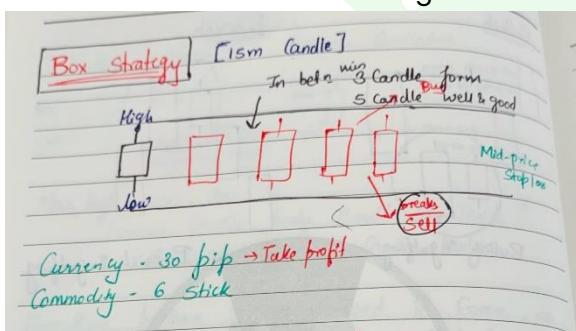 Box Strategy [15m Candle]
In betn min 3 Candle form
5 Candle well & good
High
Buy
Mid-price
Stoploss
low
breaks
Sell
Currency - 30 pip → Take profit
Commodity - 6 Stick